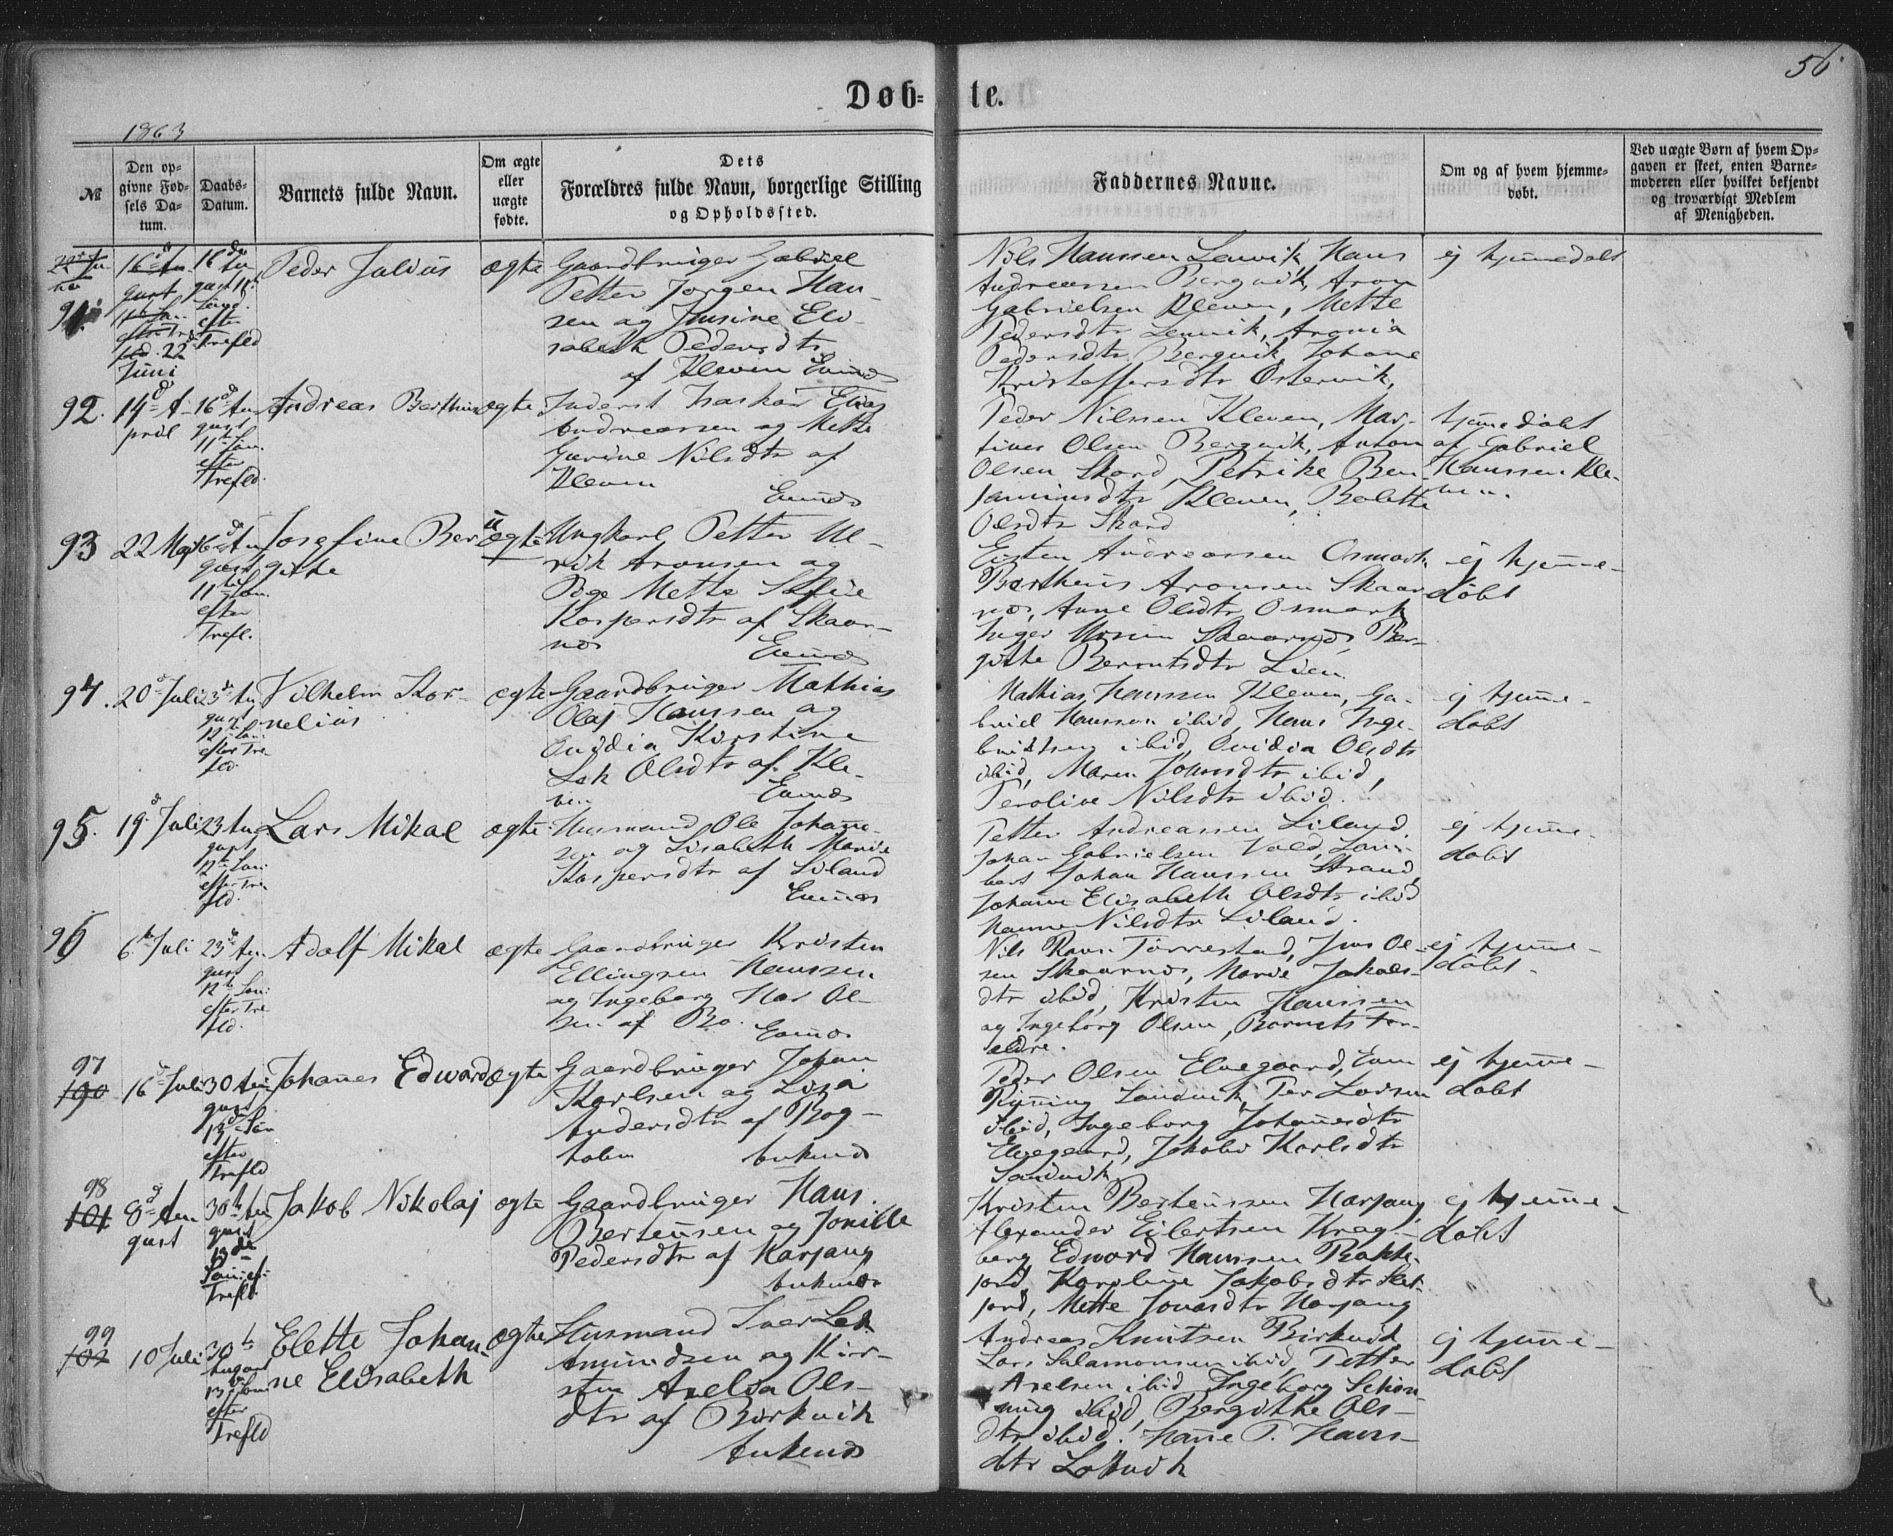 56
Døb= te.
1863
№
Den op-
givne Fød-
sels Da-
tum.
Daabs-
Datum.
Barnets fulde Navn.
Om ægte
eller
uægte
fødte.
Dets
Forældres fulde Navn, borgerlige Stilling
og Opholdssted.
Faddernes Navne.
Om og af hvem hjemme-
døbt.
Ved uægte Børn af hvem Op-
gaven er skeet, enten Barne-
moderen eller hvilket bekjendt
og troværdigt Medlem
af Menigheden.
91.
22
Juni
16 Au
gust 11
Sønd.
efter
Trefld
Peder Julius
ægte
Gaardbruger Gabriel
Petter Jørgen Han-
sen og Jensine Eli
sabeth Pedersdtr
af Kleven Evenæs
Nils Hanssen Lenvik, Hans
Andreassen Bergvik, Aron
Gabrielsen Kleven, Mette
Pedersdtr Lenvik, Aronia
Pedersdtr Bergvik, Johane
Kristoffersdtr Østervik,
ej hjemmedøbt
92.
14 A-
pril
16 Au
gust
11 Søn.
efter
Trefld.
Andreas Berthius
ægte
Inderst Elias
Andreassen og Mette
Gurine Nilsdtr af
Kleven Evenæs
Peder Nilssen Kleven, Mar-
tines Olsen Bergvik, Anton
Olsen Skard, Petrike Ben-
jaminsdtr Kleven, Beletthe
Olsdtr Skard
hjemmedøbt
af Gabriel
Hanssen Kle-
ven.
93
22 Maj
16 Au
gust
11te Søn.
efter
Trefl.
Josefine Ber
githe
uægte
Ungkarl Petter Ul-
rik Aronsen og
Pige Mette Sofie
Kaspersdtr af Skaar-
næs Evenæs
Eisten Andreassen Osmark,
Bertheus Aronsen Skaar
næs, Anne Olsdtr Osmark
Inger Skaarnæs, Ber-
githe Berntsdtr Lien
ej hjemme-
døbt
94.
20 Juli
23 Au
gust
12te Søn
efter Tre
fld.
Vilhelm Kor-
nelius
ægte
Gaardbruger Mathias
Olaj Hanssen og
Ovidia Kirstine
Lek Olsdtr af Kle-
ven Evenæs
Mathias Hanssen Kleven, Ga-
briel Hanssen ibid, Hans Inge-
brigtsen ibid, Ovidia Olsdtr
ibid, Maren Jonsdtr ibid,
Peroline Nilsdtr ibid.
ej hjemme-
døbt
95.
19 Juli
23 Au
gust
12te Søn
efter Tre
fld.
Lars Mikal
ægte
Husmand Ole Johanne-
sen og Lisabeth Marie
Kaspersdtr af Liland
Evenæs
Petter Andreassen Liland,
Johan Gabrielsen Vold, Lam-
bert Johan Hanssen Strand,
Johanne Elisabeth Olsdtr ibid
Hanna Nilsdtr Liland.
ej hjemme-
døbt
96
6te Juli
23 Au-
gust
12te Søn
efter Tre
fld.
Adolf Mikal
ægte
Gaardbruger Kristen
Ellingsen Hanssen
og Ingeborg Mar Ol-
sen af Bø. Evenæs
Nils Ravn Tårrestad, Jens Ol-
sen Skaarnæs, Marie Jakobs-
dtr ibid, Kristen Hanssen
og Ingeborg Olsen, Barnets For-
ældre.
ej hjemme-
døbt.
97
100
16 Juli
30 Au
gust
13 Søn
efter
Trefld
Johannes Edward
ægte
Gaardbruger Johan
Karlsen og Lisa
Andersdtr af Bog-
holm Ankenes
Peder Olsen Elvegaard, Even
Rynning Sandvik, Per Larsen
ibid, Ingeborg Johannesdtr
Elvegaard, Jakobe Karlsdtr
Sandvik
ej hjemme-
døbt
98
101
8 Au
gust
30te Au
gust
13de
Søn ef.
Trefld
Jakob Nikolaj
ægte
Gaardbruger Hans
Berteussen og Jonille
Pedersdtr af Harjang
Ankenes
Kristen Berteussen Harjang,
Alexander Eilertsen Krag-
berg, Edward Hanssen Bakke-
jord, Karoline Jakobsdtr Sæt-
jord, Mette Jonasdtr Harjang
ej hjemme-
døbt
99
102
10 Juli
30te
August
13 Søn
efter
Trefld
Elette Johan-
ne Elisabeth
ægte
Husmand Iver Lek
Amundsen og Kir-
sten Axelia Ols-
dtr af Birkvik
Ankenes
Andreas Knutsen Birkvik
Lars Salamonsen ibid, Petter
Axelsen ibid, Ingeborg Schøn-
ning ibid, Bergitthe Ols-
dtr ibid. Hanne P. Hans-
dtr
ej hjemme-
døbt